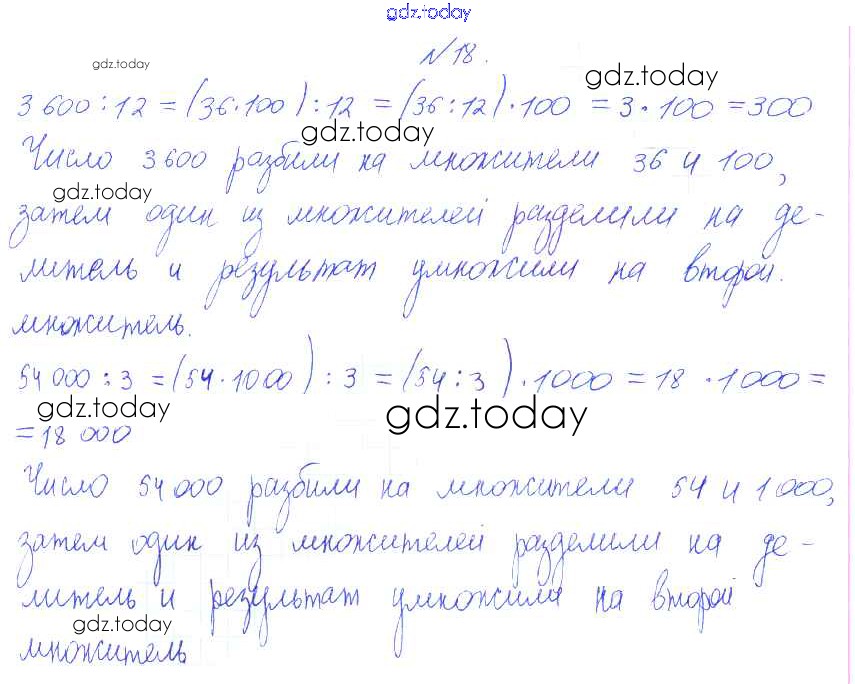 gdz.today
№18.
gdz.today
gdz.today
3 600 : 12 = (36·100) : 12 = (36 : 12)·100 = 3·100 = 300
gdz.today
Число 3 600 разбили на множители 36 и 100,
gdz.today
затем один из множителей разделили на де-
литель и результат умножили на второй.
множитель.
54 000 : 3 = (54·1000) : 3 = (54 : 3)·1000 = 18 ·1000 =
gdz.today
gdz.today
= 18 000
Число 54 000 разбили на множители 54 и 1 000,
затем один из множителей разделили на де-
литель и результат умножили на второй
gdz.today
множитель